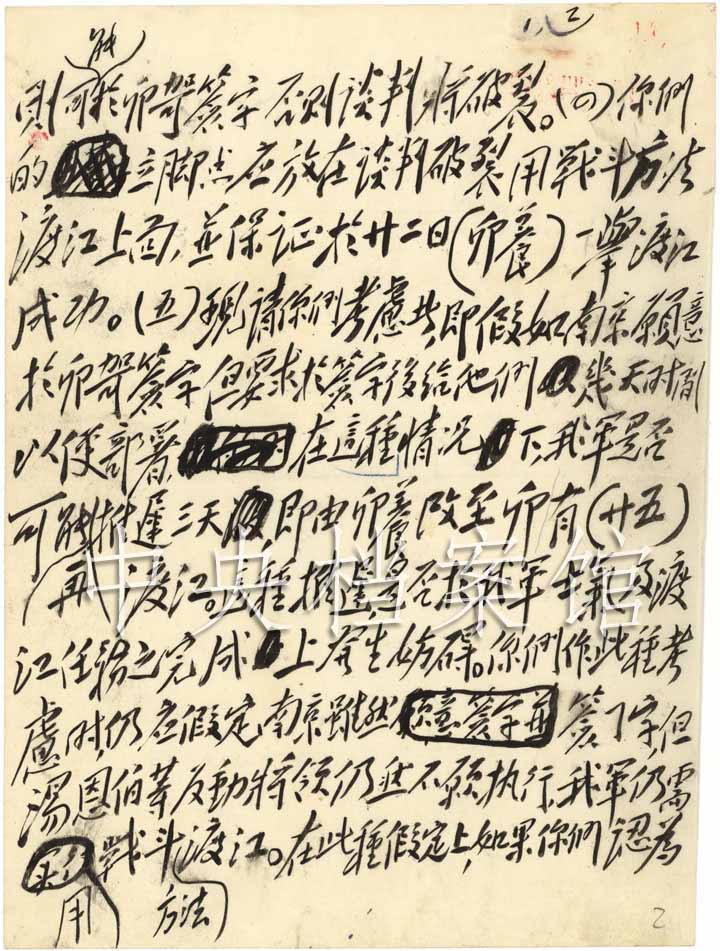 能
則可於卯哿簽字否則談判將破裂。(四)你們
的立脚点应放在談判破裂用戰斗方法
渡江上面,並保证於廿二日(卯養)一舉渡江
成功。(五)現請你們考慮此,即假如南京願意
於卯哿簽字但要求於簽字後给他们幾天时间
以便部署,在這種情况下,我军是否
可能推遲三天,即由卯養改至卯有(廿五)
再渡江。這種推遲是否於我军士氣及渡
江任務之完成上發生妨碍。你們作此種考
慮时,仍应假定南京雖然簽了字,但
湯恩伯等反動將領仍然不願执行,我軍仍需
戰斗渡江。在此種假定上,如果你們認為
用 方法
2
中央档案馆